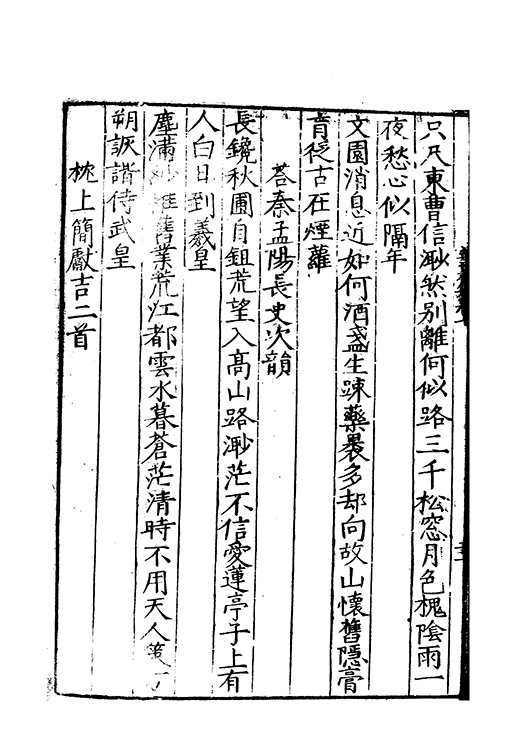 只尺東曹信渺然別離何似路三千松窓月色槐陰雨一
夜愁心似隔年
文園消息近如何酒盞生踈藥裹多却向故山懷舊隱膏
肓從古在煙蘿
荅秦孟陽長史次韻
長鑱秋圃自鉏荒望入高山路渺茫不信愛蓮亭子上有
人白日到羲皇
塵滿 舊業荒江都雲水暮蒼茫清時不用天人策
朔詼諧侍武皇
枕上簡獻吉二首